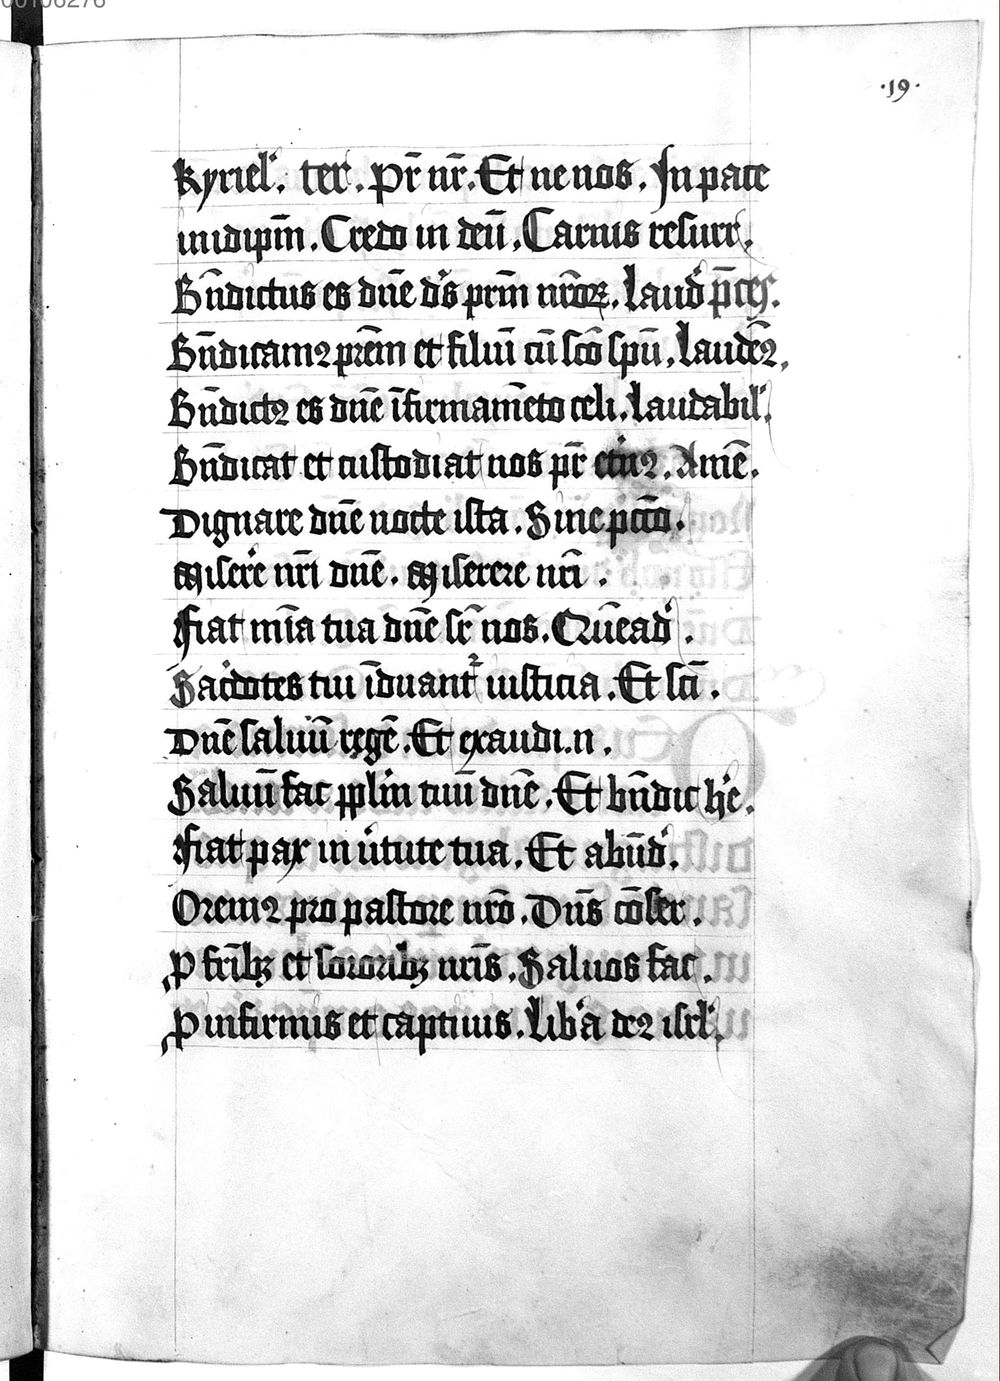 00106276
·19·
Kyriel'. ter. Pr̄ nr̄. Et ne nos. In pace
in idip̄m. Credo in deū. Carnis resurr.
Bn̄dictus es dn̄e d's prm̄ nr̄oꝝ. laud' p̄
Bn̄dicamꝰ prēm et filiū cū sc̄o spū. laudem
Bn̄dictꝰ es dn̄e ī firmamēto celi. laudabil'.
Bn̄dicat et custodiat nos pr̄. Amē.
Dignare dn̄e nocte ista. Sine pctō.
Miser'e nr̄i dn̄e. Miserere nr̄i.
Fiat mīa tua dn̄e sr̄ nos. Quēad'.
Sac'dotes tui īduant᷑ iusticia. Et scī.
Dn̄e saluū regē. Et exaudi. n.
Saluū fac pplm̄ tuū dn̄e. Et bn̄dic h'e.
Fiat pax in u'tute tua. Et abūd'.
Oremꝰ pro pastore nr̄o. Dn̄s cōser.
ꝓ frībꝫ et sororibꝫ nr̄is. Saluos fac.
ꝓ infirmis et captiuis. Lib'a deꝰ isrl'.